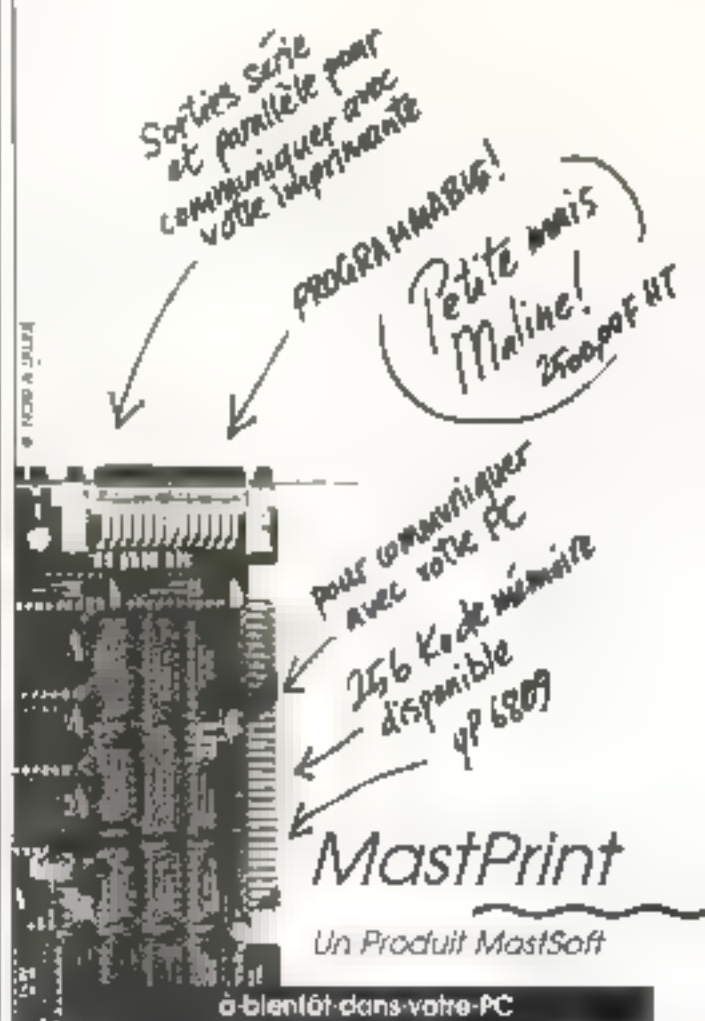 Sorties série
et parallèle pour
communiquer avec
votre imprimante
PROGRAMMABLE!
Petite mais
Maline!
2500,00F HT
pour communiquer
avec votre PC
256 Ko de mémoire
disponible
µP 6809
MastPrint
Un Produit MastSoft
à·bientôt·dans·votre·PC